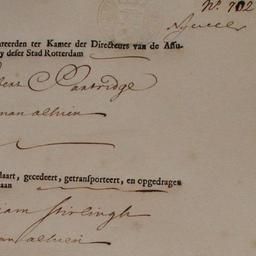 Nº. 702
reerden ter Kamer der Directeurs van de Assu-
y deser Stad Rotterdam
Partridge
man alhier
laart, gecedeert, getransporteert, en opgedragen
aan
iam Stirlingh
man alhier